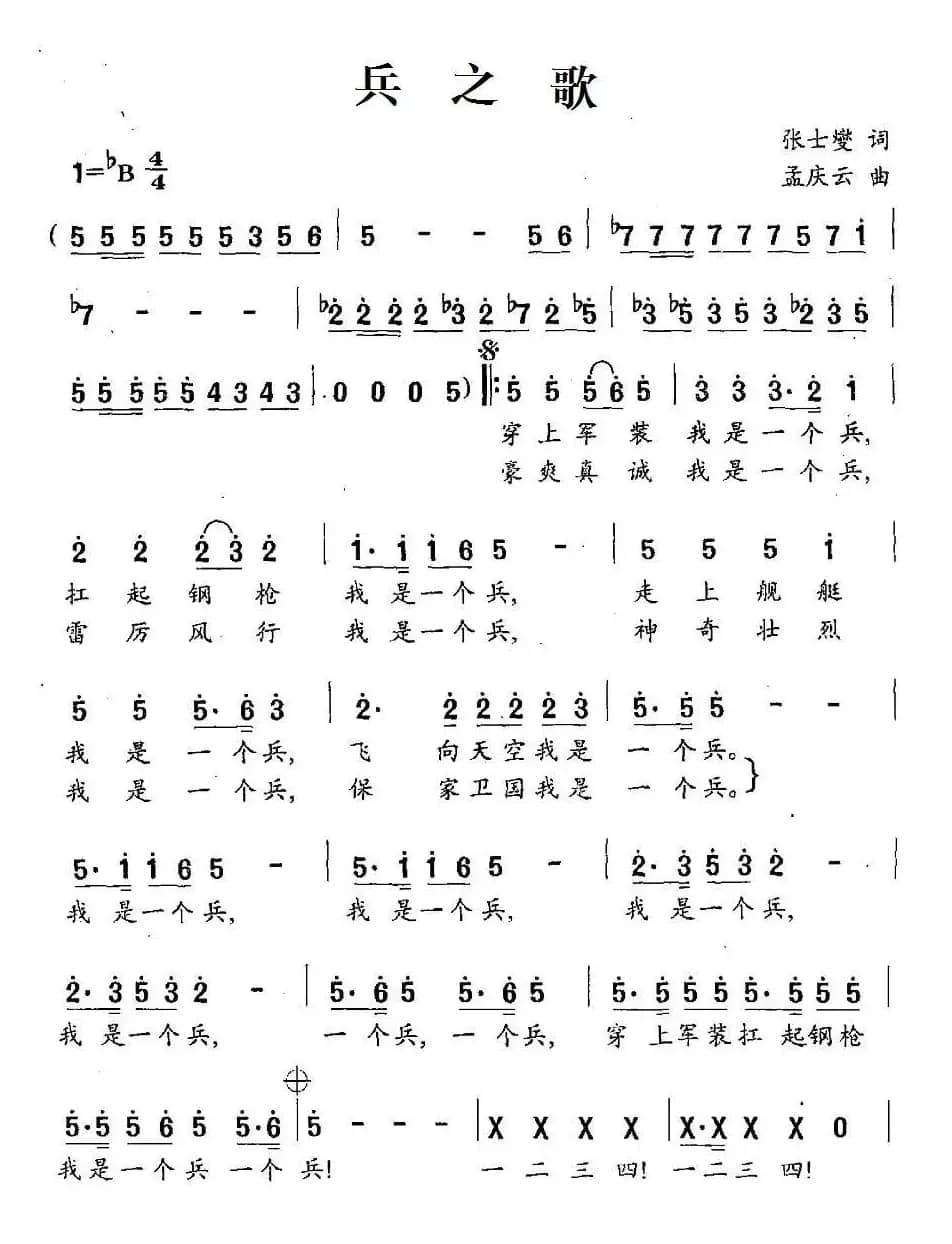 兵之歌
张士燮 词
1=♭B 4/4
孟庆云 曲
( 5 5 5 5 5 5 3 5 6 | 5 - - 5 6 | ♭7 7 7 7 7 7 5 7 i |
♭7 - - - | ♭2̇ 2̇ 2̇ 2̇ ♭3̇ 2̇ ♭7 2̇ ♭5̇ | ♭3̇ ♭5̇ 3̇ 5̇ 3̇ ♭2̇ 3̇ 5̇ |
5̇ 5̇ 5̇ 5̇ 5̇ 4 3 4 3 | 0 0 0 5 ) 𝄋 ‖: 5̇ 5̇ 5̇ 6̇ 5̇ | 3̇ 3̇ 3̇· 2̇ i |
穿上军装 我是一个兵,
豪爽真诚 我是一个兵,
2̇ 2̇ 2̇ 3̇ 2̇ | i· i i 6 5 - | 5 5 5 i |
扛起钢枪 我是一个兵, 走上舰艇
雷厉风行 我是一个兵, 神奇壮烈
5̇ 5̇ 5̇· 6̇ 3̇ | 2̇· 2̇ 2̇ 2̇ 2̇ 3̇ | 5̇· 5̇ 5̇ - - |
我是一个兵, 飞 向天空我是 一个兵。
我是一个兵, 保 家卫国我是 一个兵。}
5· i i 6 5 - | 5· i i 6 5 - | 2̇· 3̇ 5̇ 3̇ 2̇ - |
我是一个兵, 我是一个兵, 我是一个兵,
2̇· 3̇ 5̇ 3̇ 2̇ - | 5̇· 6̇ 5̇ 5̇· 6̇ 5̇ | 5̇· 5̇ 5̇ 5̇ 5̇· 5̇ 5̇ 5̇ |
我是一个兵, 一个兵, 一个兵, 穿上军装扛起钢枪
5̇· 5̇ 5̇ 6̇ 5̇ 5̇· 6̇ | 5̇ - - - | X X X X | X· X X X 0 |
我是一个兵一个兵! 一二三四! 一二三四!